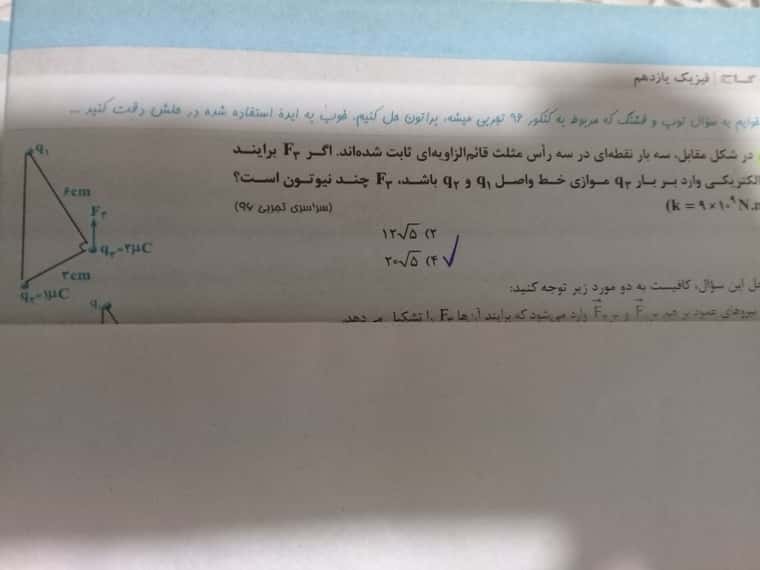 گاج | فیزیک یازدهم
به سؤال توپ و قشنگ که مربوط به کنکور ۹۶ تجربی میشه، براتون حل کنیم. خوب به ایدهٔ استفاده شده در حلش دقت کنید ...
در شکل مقابل، سه بار نقطه‌ای در سه رأس مثلث قائم‌الزاویه‌ای ثابت شده‌اند. اگر F۳ برایند
الکتریکی وارد بر بار q۳ موازی خط واصل q۱ و q۲ باشد، F۳ چند نیوتون است؟
(k = ۹×۱۰^۹ N.m
(سراسری تجربی ۹۶)
۲) ۱۲√۵
۴) ۲۰√۵
q۱
۶cm
F۳
q۳=۲μC
۳cm
q۲=۱μC
حل این سؤال، کافیست به دو مورد زیر توجه کنید:
نیروهای عمود بر هم F و F وارد می‌شود که برایند آن‌ها F۳ را تشکیل می‌دهد.